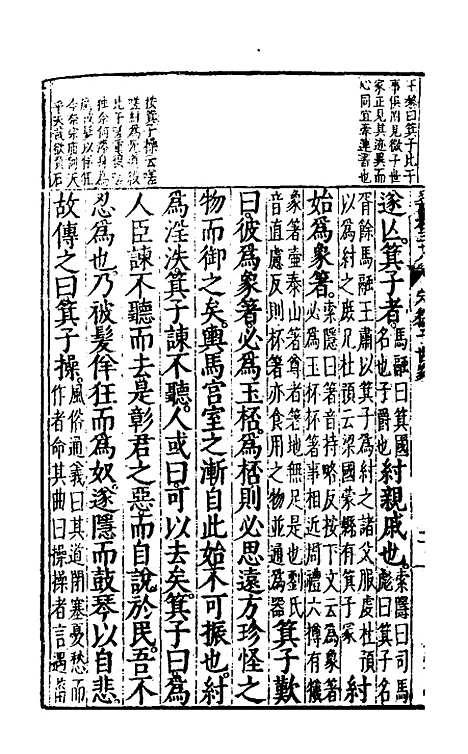 事俱附見微子世
家正見其迹異而
心同宜牽連書也
按箕子操云嗟
嗟紂為無道殺
比干嗟重復嗟
獨柰何漆身為
厲被髮以佯狂
今柰宗廟何天
乎天哉欲負石
遂亡。箕子者。馬融曰箕國名也子爵也紂親戚也。索隱曰司馬彪曰箕子名
胥餘馬融王肅以箕子為紂之諸父服虔杜預以為紂之庶兄杜預云梁國蒙縣有箕子冢紂
始為象箸。索隱曰箸音持略反按下文云為象箸必為玉杯杯箸事相近周禮六樽有犧
象箸壺泰山箸尊者箸地無足是也劉氏音直慮反則杯箸亦食用之物並通為器箕子歎
曰。彼為象箸。必為玉桮。為桮則必思遠方珍怪之
物而御之矣。輿馬宮室之漸自此始。不可振也。紂
為淫泆。箕子諫不聽。人或曰。可以去矣。箕子曰。為
人臣諫不聽而去。是彰君之惡而自說於民。吾不
忍為也。乃被髮佯狂而為奴。遂隱而鼓琴以自悲。
故傳之曰箕子操。風俗通義曰其道閉塞憂愁而作者命其曲曰操操者言遇菑